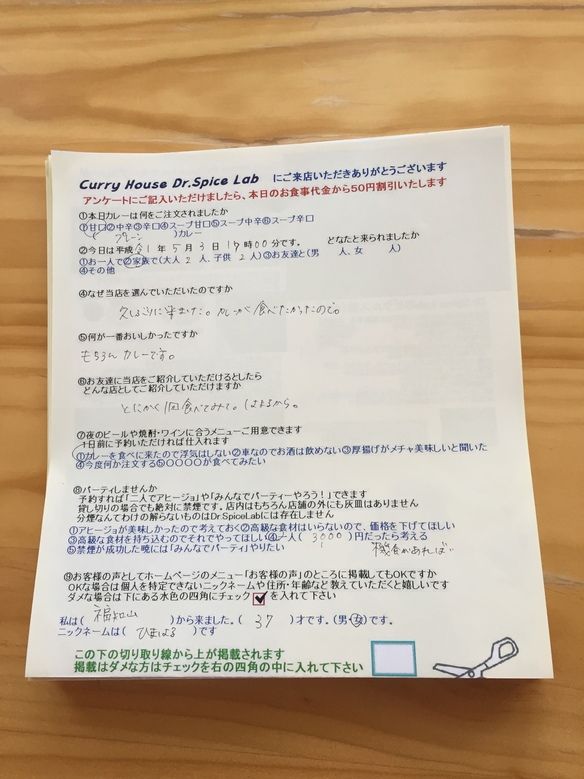 Curry House Dr.Spice Lab にご来店いただきありがとうございます
アンケートにご記入いただけましたら、本日のお食事代金から50円割引いたします
①本日カレーは何をご注文されましたか
①甘口②中辛③辛口④スープ甘口⑤スープ中辛⑥スープ辛口
( プレーン )カレー
②今日は平成 年 5 月 3 日 17 時00分です。 どなたと来られましたか
①お一人で②家族で(大人 2 人、子供 2 人)③お友達と(男 人、女 人)
④その他
④なぜ当店を選んでいただいたのですか
久しぶりに来ました。カレーが食べたかったので。
⑤何が一番おいしかったですか
もちろんカレーです。
⑥お友達に当店をご紹介していただけるとしたら
どんな店としてご紹介していただけますか
とにかく1回食べてみて。はまるから。
⑦夜のビールや焼酎・ワインに合うメニューご用意できます
1日前に予約いただければ仕入れます
①カレーを食べに来たので浮気はしない②車なのでお酒は飲めない③厚揚げがメチャ美味しいと聞いた
④今度何か注文する⑤〇〇〇〇が食べてみたい
⑧パーティしませんか
予約すれば「二人でアヒージョ」や「みんなでパーティーやろう!」できます
貸し切りの場合でも絶対に禁煙です。店内はもちろん店舗の外にも灰皿はありません
分煙なんてわけの解らないものはDr.SpiceLabには存在しません
①アヒージョが美味しかったので考えておく②高級な食材はいらないので、価格を下げてほしい
③高級な食材も持ち込むのでそれでやってほしい④一人( 3000 )円だったら考える
⑤禁煙が成功した暁には「みんなでパーティ」やりたい 機会があれば
⑨お客様の声としてホームページのメニュー「お客様の声」のところに掲載してもOKですか
OKな場合は個人を特定できないニックネームや住所・年齢など教えていただくと嬉しいです
ダメな場合は下にある水色の四角にチェック を入れて下さい
私は( 福知山 )から来ました。( 37 )才です。(男・女)です。
ニックネームは( ひまはる )です
この下の切り取り線から上が掲載されます
掲載はダメな方はチェックを右の四角の中に入れて下さい